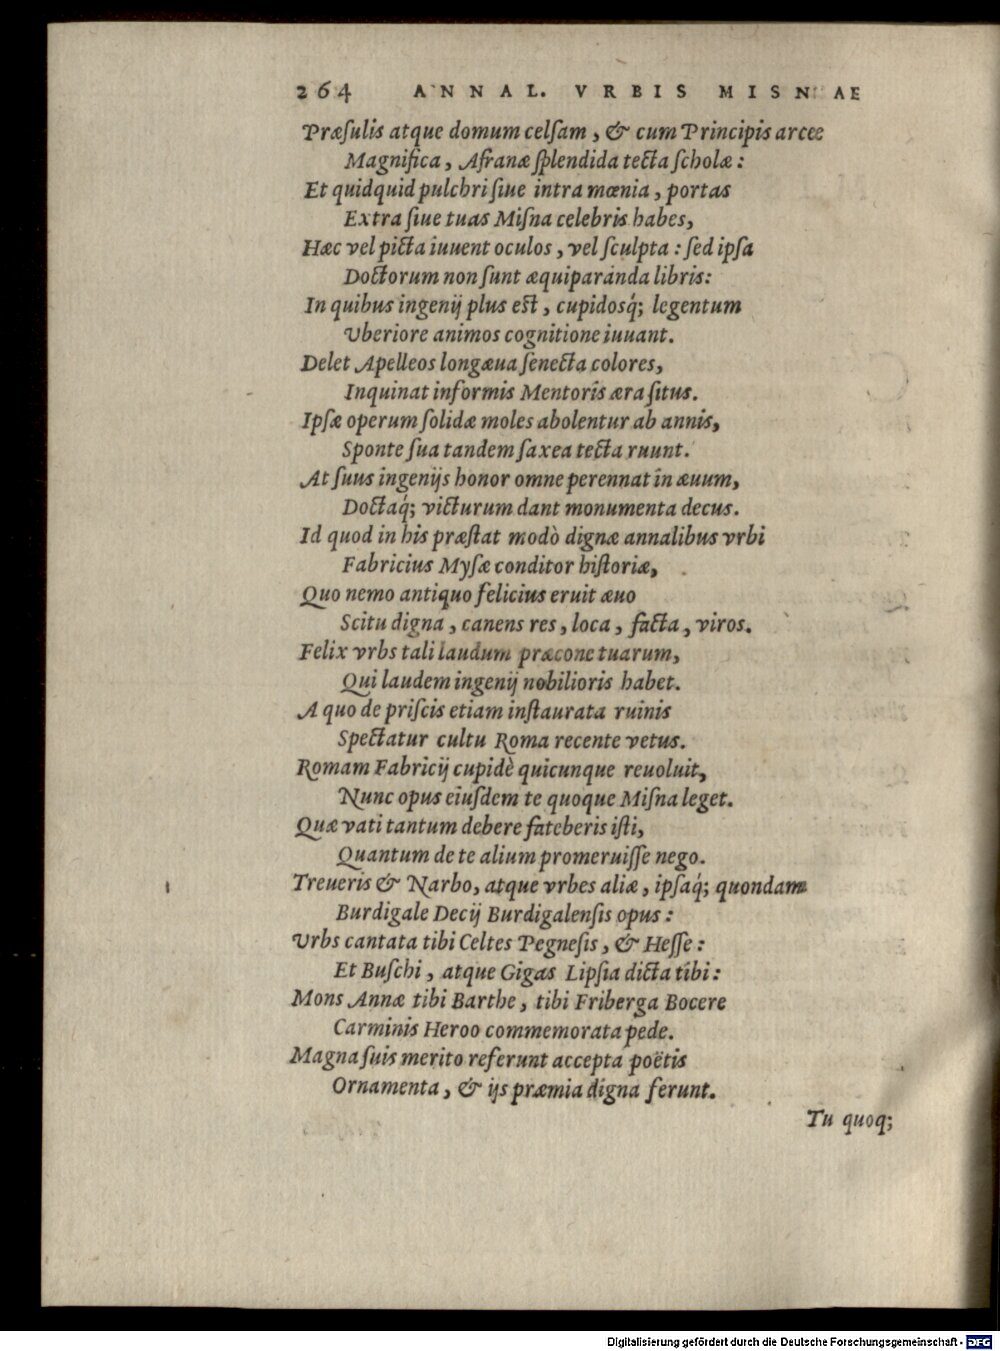 264 ANNAL. VRBIS MISNAE
Præſulis atque domum celſam, & cum Principis arce
Magnifica, Afranæ ſplendida tecta ſcholæ:
Et quidquid pulchri ſiue intra mœnia, portas
Extra ſiue tuas Miſna celebris habes,
Hæc vel picta iuuent oculos, vel ſculpta: ſed ipſa
Doctorum non ſunt æquiparanda libris:
In quibus ingenij plus eſt, cupidosq́; legentum
Vberiore animos cognitione iuuant.
Delet Apelleos longæua ſenecta colores,
Inquinat informis Mentoris æra ſitus.
Ipſæ operum ſolidæ moles abolentur ab annis,
Sponte ſua tandem ſaxea tecta ruunt.
At ſuus ingenijs honor omne perennat in æuum,
Doctaq́; victurum dant monumenta decus.
Id quod in his præſtat modò dignæ annalibus vrbi
Fabricius Myſæ conditor hiſtoriæ,
Quo nemo antiquo felicius eruit æuo
Scitu digna, canens res, loca, facta, viros.
Felix vrbs tali laudum præcone tuarum,
Qui laudem ingenij nobilioris habet.
A quo de priſcis etiam inſtaurata ruinis
Spectatur cultu Roma recente vetus.
Romam Fabricij cupidè quicunque reuoluit,
Nunc opus eiuſdem te quoque Miſna leget.
Quæ vati tantum debere fateberis iſti,
Quantum de te alium promeruiſſe nego.
Treueris & Narbo, atque vrbes aliæ, ipſaq́; quondam
Burdigale Decij Burdigalenſis opus:
Vrbs cantata tibi Celtes Pegneſis, & Heſſe:
Et Buſchi, atque Gigas Lipſia dicta tibi:
Mons Annæ tibi Barthe, tibi Friberga Bocere
Carminis Heroo commemorata pede.
Magna ſuis merito referunt accepta poëtis
Ornamenta, & ijs præmia digna ferunt.
Tu quoq;
Digitalisierung gefördert durch die Deutsche Forschungsgemeinschaft - DFG